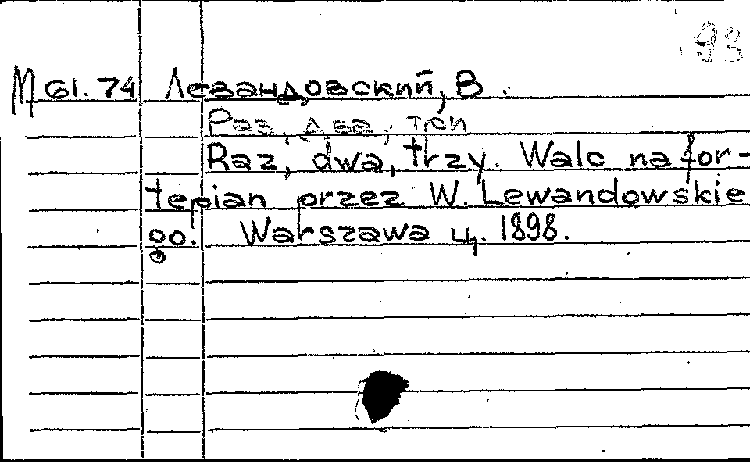 93
M 61.74 Левандовский, В.
Раз, два, три
Raz, dwa, trzy. Walc na for-
tepian przez W. Lewandowskie
go. Warszawa ц. 1898.